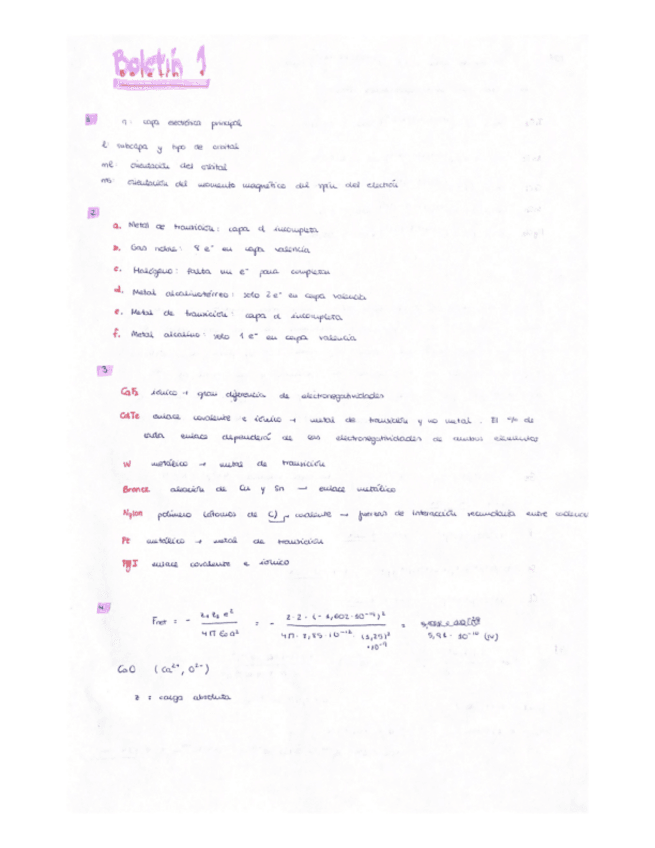 Boletín 1
1. n: capa electrónica principal
l: subcapa y tipo de orbital
ml: orientación del orbital
ms: orientación del momento magnético del spin del electrón
2.
a. Metal de transición: capa d incompleta
b. Gas noble: 8 e⁻ en capa valencia
c. Halógeno: falta un e⁻ para completar
d. Metal alcalinotérreo: solo 2 e⁻ en capa valencia
e. Metal de transición: capa d incompleta
f. Metal alcalino: solo 1 e⁻ en capa valencia
3
CaF₂ iónico → gran diferencia de electronegatividades
CdTe enlace covalente e iónico → metal de transición y no metal. El % de
cada enlace dependerá de las electronegatividades de ambos elementos
W metálico → metal de transición
Bronce aleación de Cu y Sn → enlace metálico
Nylon polímero (átomos de C) → covalente → fuerzas de interacción secundaria entre cadenas
Pt metálico → metal de transición
enlace covalente e iónico
4.
CaO (Ca²⁺, O²⁻)
z = carga absoluta